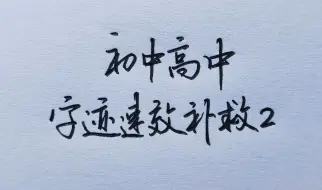 初中高中
字迹速效补救2